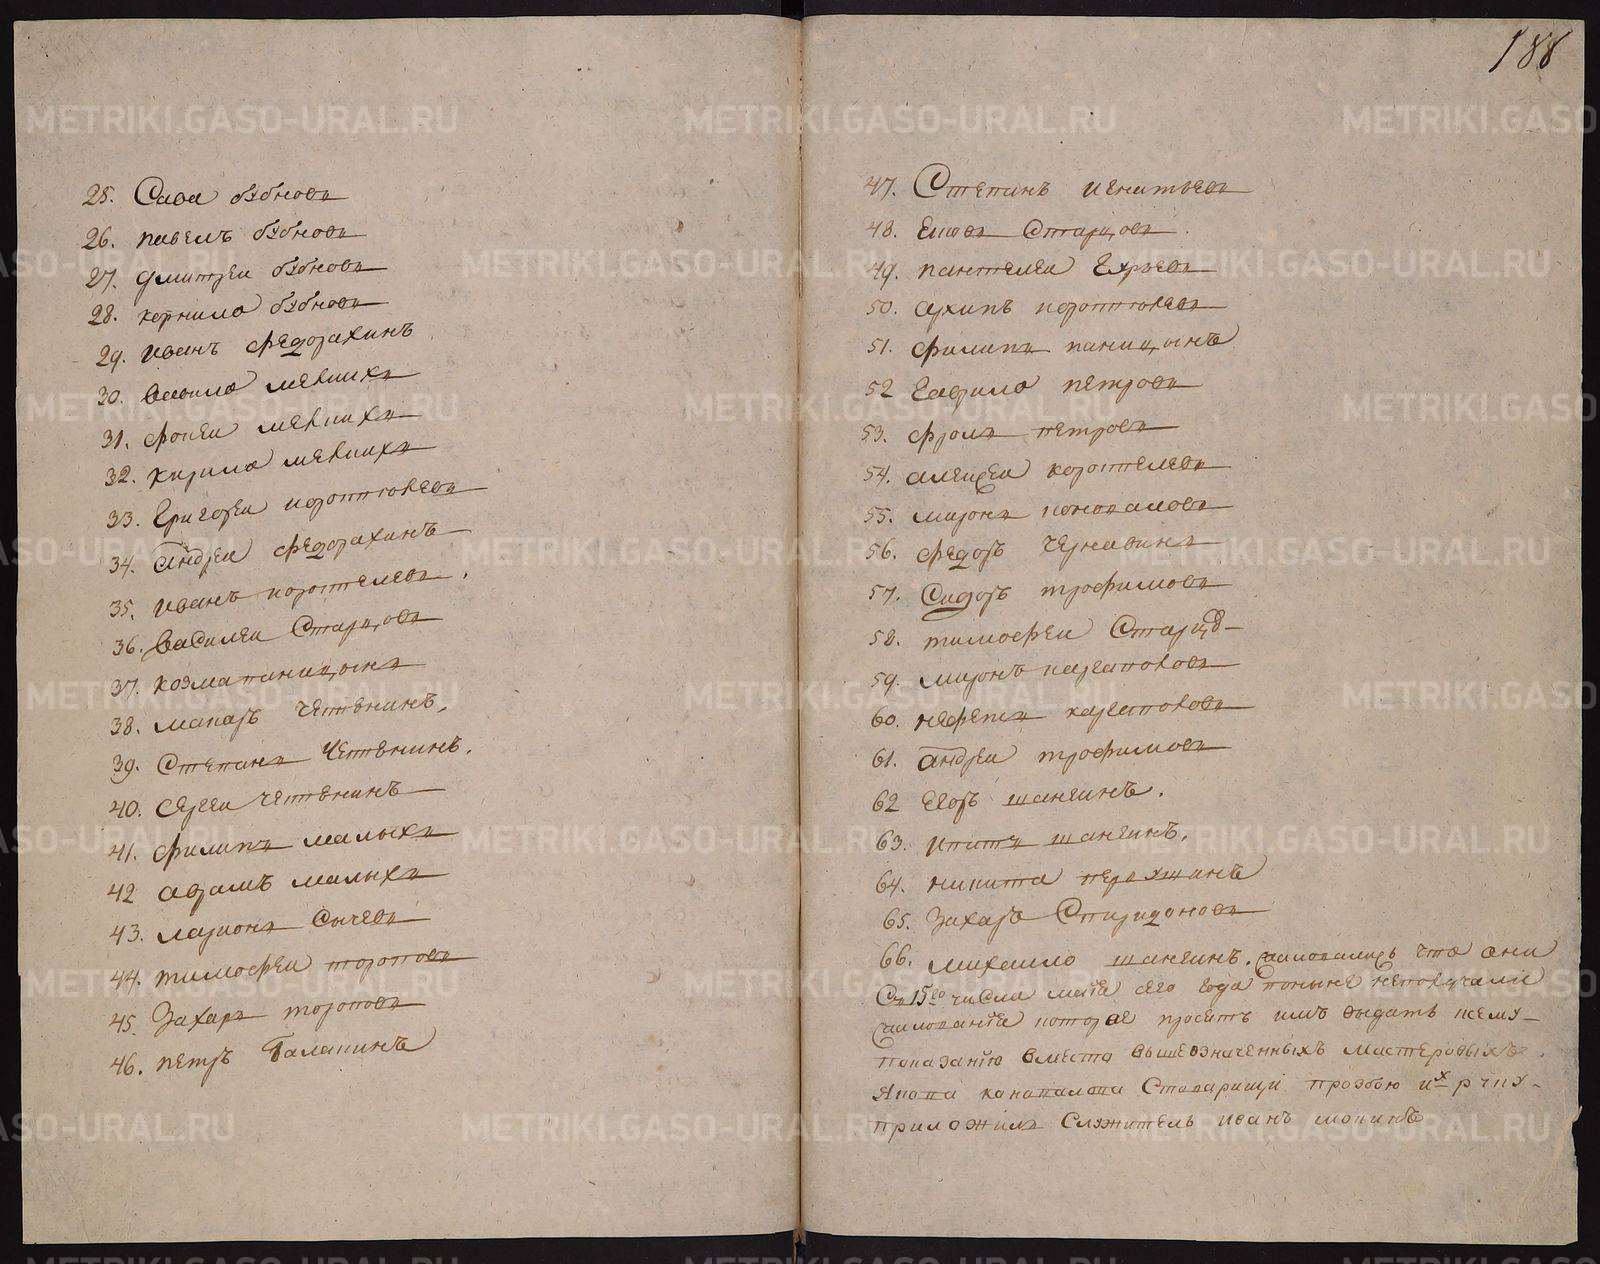 188
25. Сава бубновъ
26. павелъ бубновъ
27. дмитреи бубновъ
28. корнило бубновъ
29. иванъ федорахинъ
30. вавило мевшихъ
31. фокеи мевшихъ
32. кирило мевшихъ
33. Григореи коротковъ
34. андреи федорахинъ
35. иванъ коротелевъ.
36. василеи Старцовъ
37. козма паницынъ
38. макаръ четвнинъ.
39. Степанъ четвнинъ.
40. сергеи четвнинъ
41. филипъ малыхъ
42 абрамъ малыхъ
43. ларионъ Сычевъ
44. тимофеи тороповъ
45. Захаръ тороповъ
46. петръ Галанинъ
47. Степанъ игнатьевъ
48. Старцовъ
49. пантелеи
50. архипъ
51. филипъ паницынъ
52 Гаврило петровъ
53. фролъ петровъ
54. алеѯеи коротелевъ
55. миронъ коноваловъ
56. федоръ чернавинъ
57. Сидоръ трофимовъ
58. тимофеи Старцов
59. миронъ каргаполовъ
60. каргаполовъ
61. андреи трофимовъ
62 егоръ шангинъ.
63. ипатъ шангинъ.
64. никита
65. Захаръ Спиридоновъ
66. михаило шангинъ. что они
Съ 15го числа сего года поныне неполучали
которое просятъ имъ выдать кему
показанїю вместо вышеозначенныхъ мастеровыхъ.
Якова коновалова Стоварищи прозбою ихъ руку
приложилъ Служитель иванъ мокинъ
METRIKI.GASO-URAL.RU